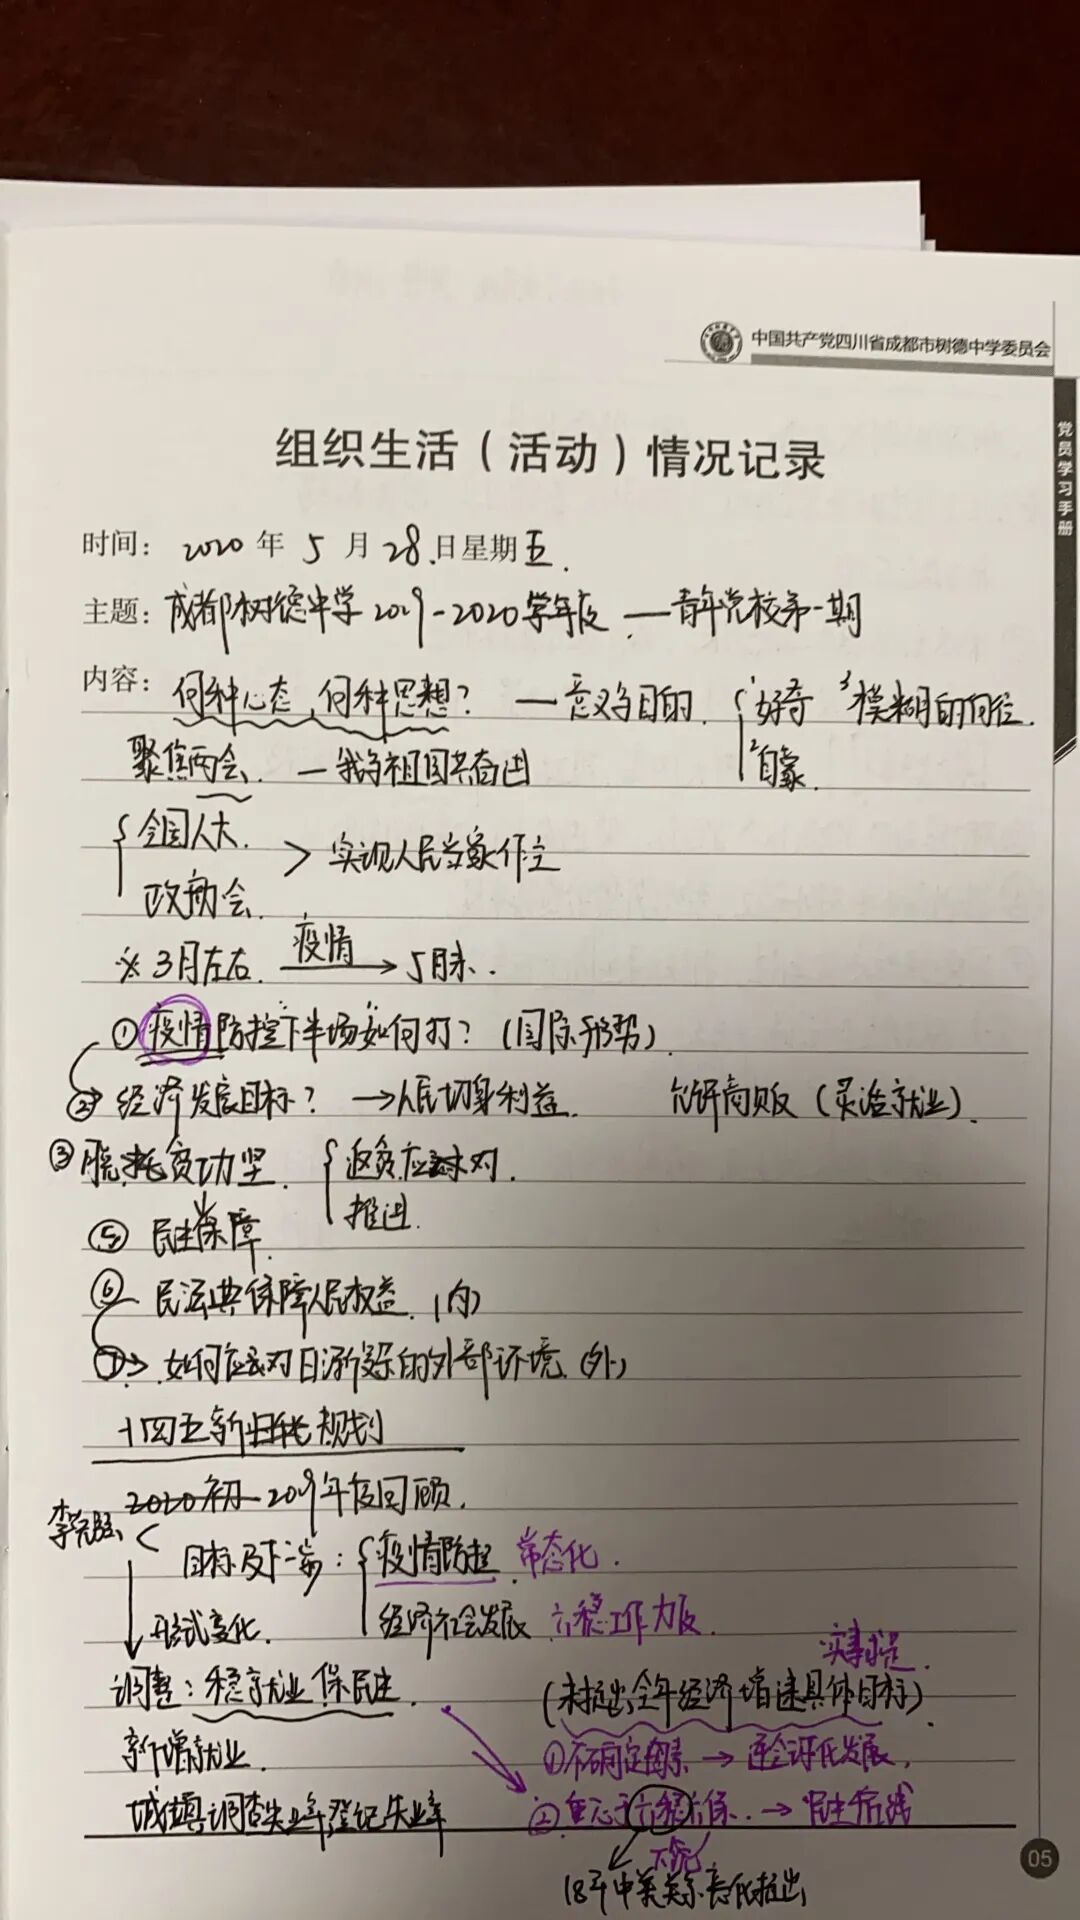 中国共产党四川省成都市树德中学委员会
党员学习手册
组织生活（活动）情况记录
时间： 2020 年 5 月 28 日星期五.
主题：成都树德中学2019-2020学年度 —青年党校第一期
内容：何种心态，何种思想？ —意义与目的. 1好奇 3模糊的向往.
聚焦两会. —我与祖国共奋进 2自豪.
全国人大. > 实现人民当家作主
政协会.
※ 3月左右. 疫情→ 5月末.
①疫情防控下半场如何打？（国际形势）.
② 经济发展目标？ →人民切身利益. 允许商贩（灵活就业）.
③脱贫攻坚. 返贫应对.
推进.
⑤ 民生保障.
⑥ 民法典保障人民权益.（内）
⑦→ 如何应对日渐复杂的外部环境.（外）
十四五新规划
2020初 2019年度回顾.
李克强 <
目标及下一步： 疫情防控 常态化.
形式变化. 经济社会发展 六稳工作力度.
实事求是.
调整：稳就业 保民生 （未提出全年经济增速具体目标）.
新增就业. ①不确定因素 → 适合评化发展.
城镇调查失业率,登记失业率 ②重心于六稳六保. → 民生后线
18年中美关系恶化提出
05